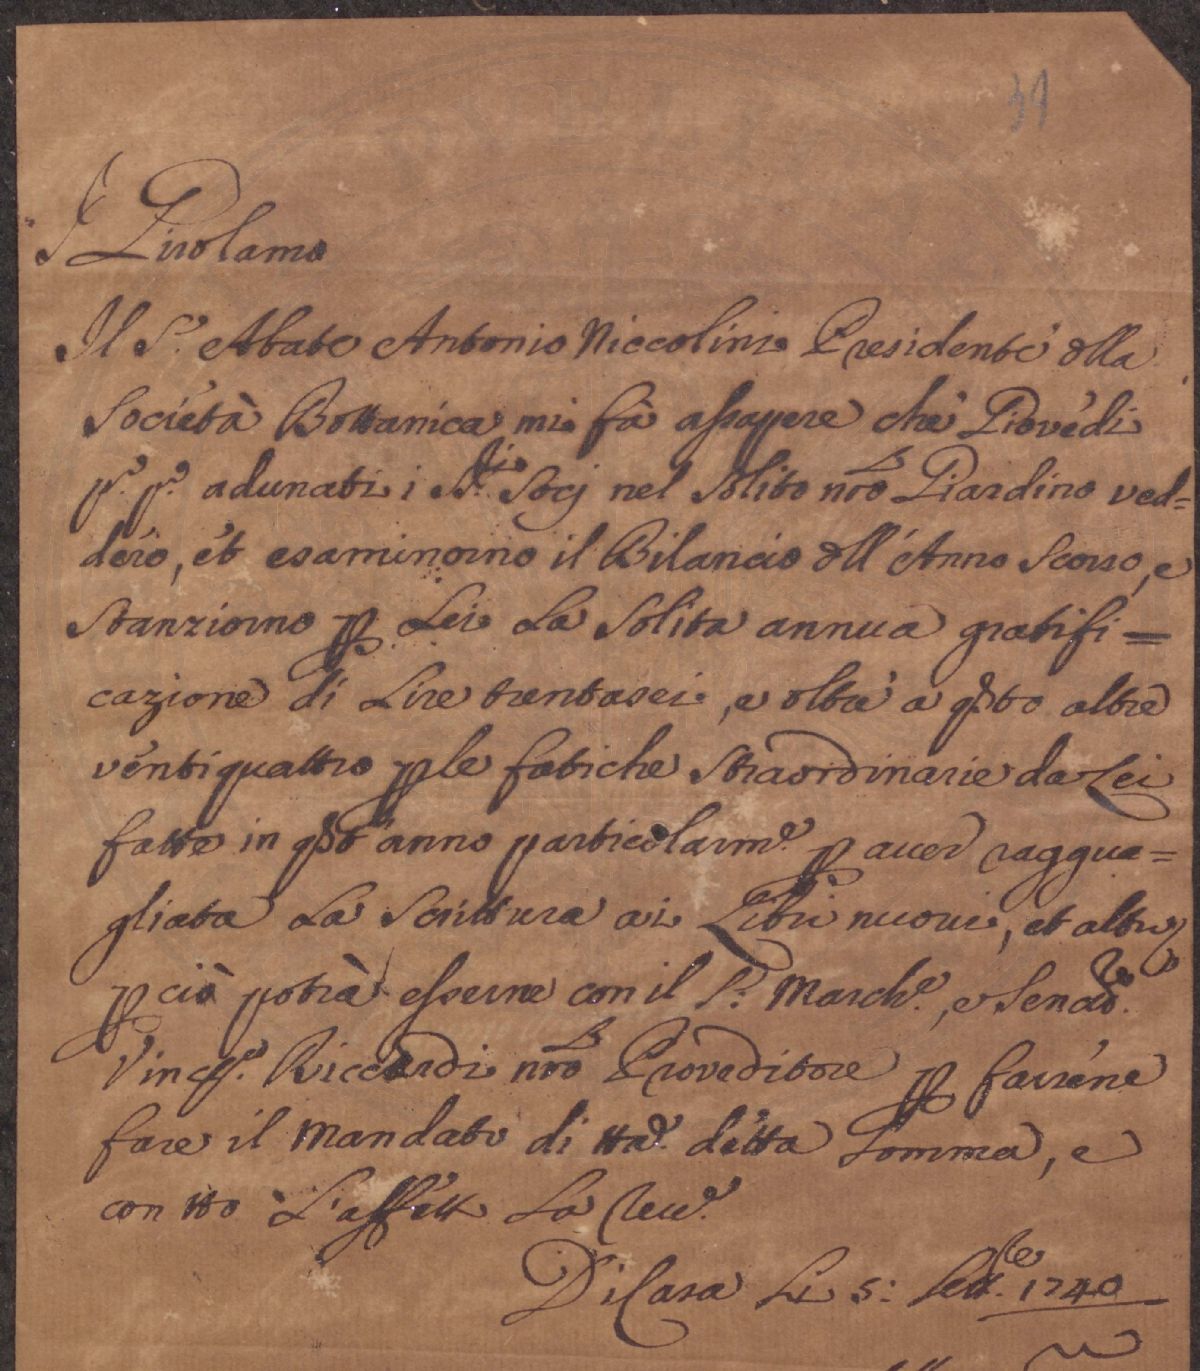 39
S. Girolamo
Il S.r Abate Antonio Niccolini Presidente dlla
Società Bottanica mi fà assapere che Giovedi
p.o p.o adunati i SS.ri Socj nel solito nro Giardino ved=
dero, et esaminorno il Bilancio dll'Anno scorso, e
stanziorno p Lei la solita annua gratifi=
cazione di Lire trentasei, e oltre a qsto altre
ventiquattro p le fatiche straordinarie da Lei
fatte in qst'anno particolarm.e p aver raggua=
gliata la scrittura ai Libri nuovi, et altro
p ciò potrà esserne con il S.r March.e, e Senat.re
Vinc.o Riccardi nro Proveditore p farsene
fare il mandato di tta d.a detta somma, e
con tto l'affetto la river.o
Di Casa Li 5: Sett.re 1740